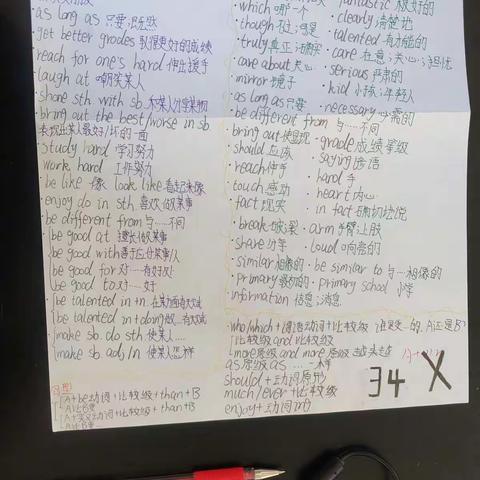 as long as 只要;既然
get better grades 取得更好的成绩
reach for one's hard 伸出援手
laugh at 嘲笑某人
share sth. with sb. 与某人分享某物
bring out the best/worse in sb
表现出某人最好/坏的一面
study hard 学习努力
work hard 工作努力
be like 像 look like 看起来像
enjoy do in sth 喜欢做某事
be different from 与……不同
be good at 擅长做某事
be good with 善于应付某事/人
be good for 对……有好处
be good to 对……好
be talented in +n.
be talented in +doing
make sb. do sth 使某人……
make sb adj/n 使某人怎样
A+be动词+比较级+than+B
A+实义动词+比较级+than+B
which 哪一个
though 不过;可是
truly 真正;确实
care about 关心
mirror 镜子
as long as 只要
be different from 与……不同
bring out 使显现
should 应该
reach 伸手
touch 感动
fact 现实
break 破裂
share 分享
similar 相像的
primary 最初的
information 信息;消息
fantastic 极好的
clearly 清楚地
talented 有才能的
care 在意;关心;担忧
serious 严肃的
kid 小孩;年轻人
necessary 必需的
grade 成绩等级
saying 谚语
hard 手
heart 内心
in fact 确切地说
arm 手臂;上肢
loud 响亮的
be similar to 与…相像的
primary school 小学
who/which+谓语动词+比较级
比较级 and 比较级
more原级 and more 原级 越来越
as原级as
should+动词原形
much/ever+比较级
enjoy+动词ing
34 X